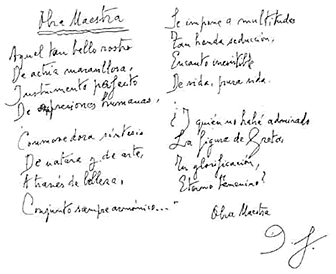 Obra Maestra
Aquel tan bello rostro
De actriz maravillosa,
Instrumento perfecto
De expresiones humanas,
Conmovedora síntesis
De natura y de arte,
A través de belleza,
Conjunto siempre armónico..."
Se impone a multitudes
Tan honda seducción,
Encanto inevitable
De vida, pura vida.
¿Y quién no habrá admirado
La figura de Greta,
Su glorificación,
Eterno femenino?
Obra Maestra
J. G.